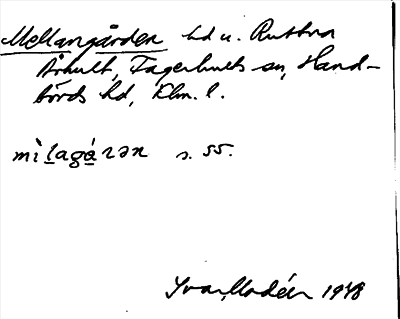 Mellangården hd u. Ruttna
Århult, Fagerhults sn, Hand-
börds hd, Klm. l.
mìlagárən s. 55.
Ivar Modéer 1948